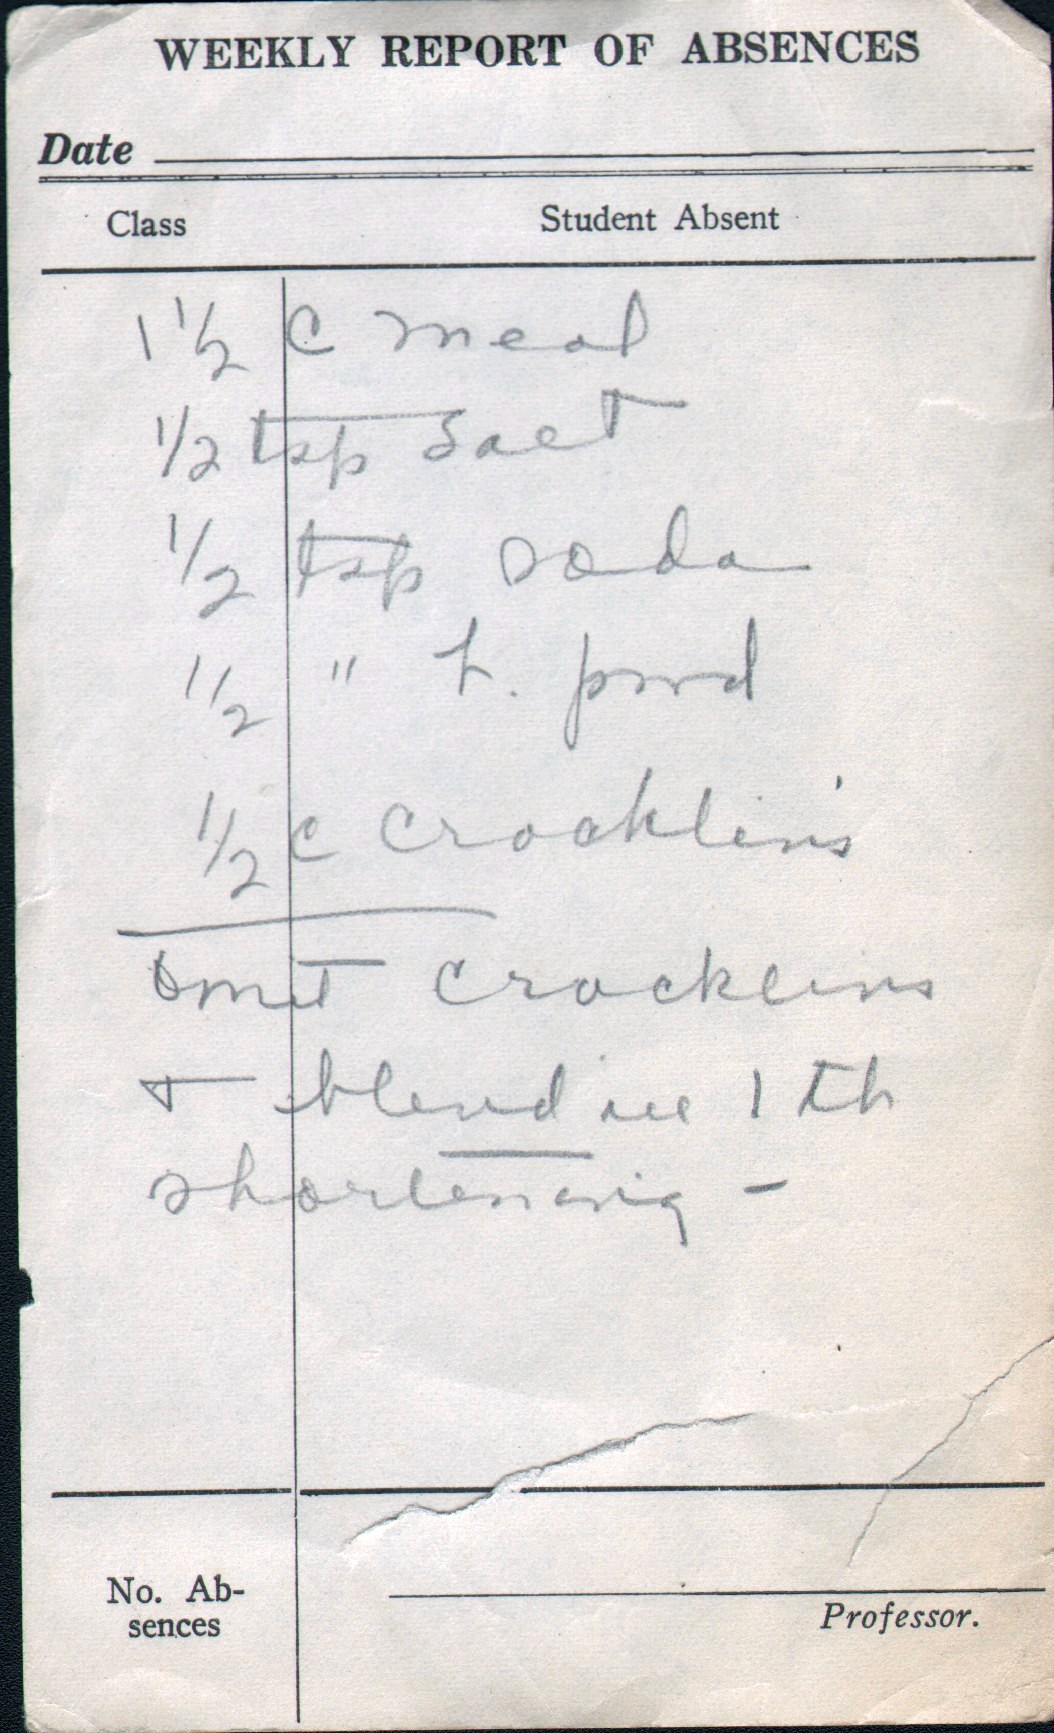 WEEKLY REPORT OF ABSENCES
Date
Class Student Absent
1 1/2 C meal
1/2 tsp salt
1/2 tsp soda
1/2 " b. powd
1/2 c cracklin's
Omit cracklins
+ blend in 1 tb
shortening -
No. Ab-
sences
Professor.